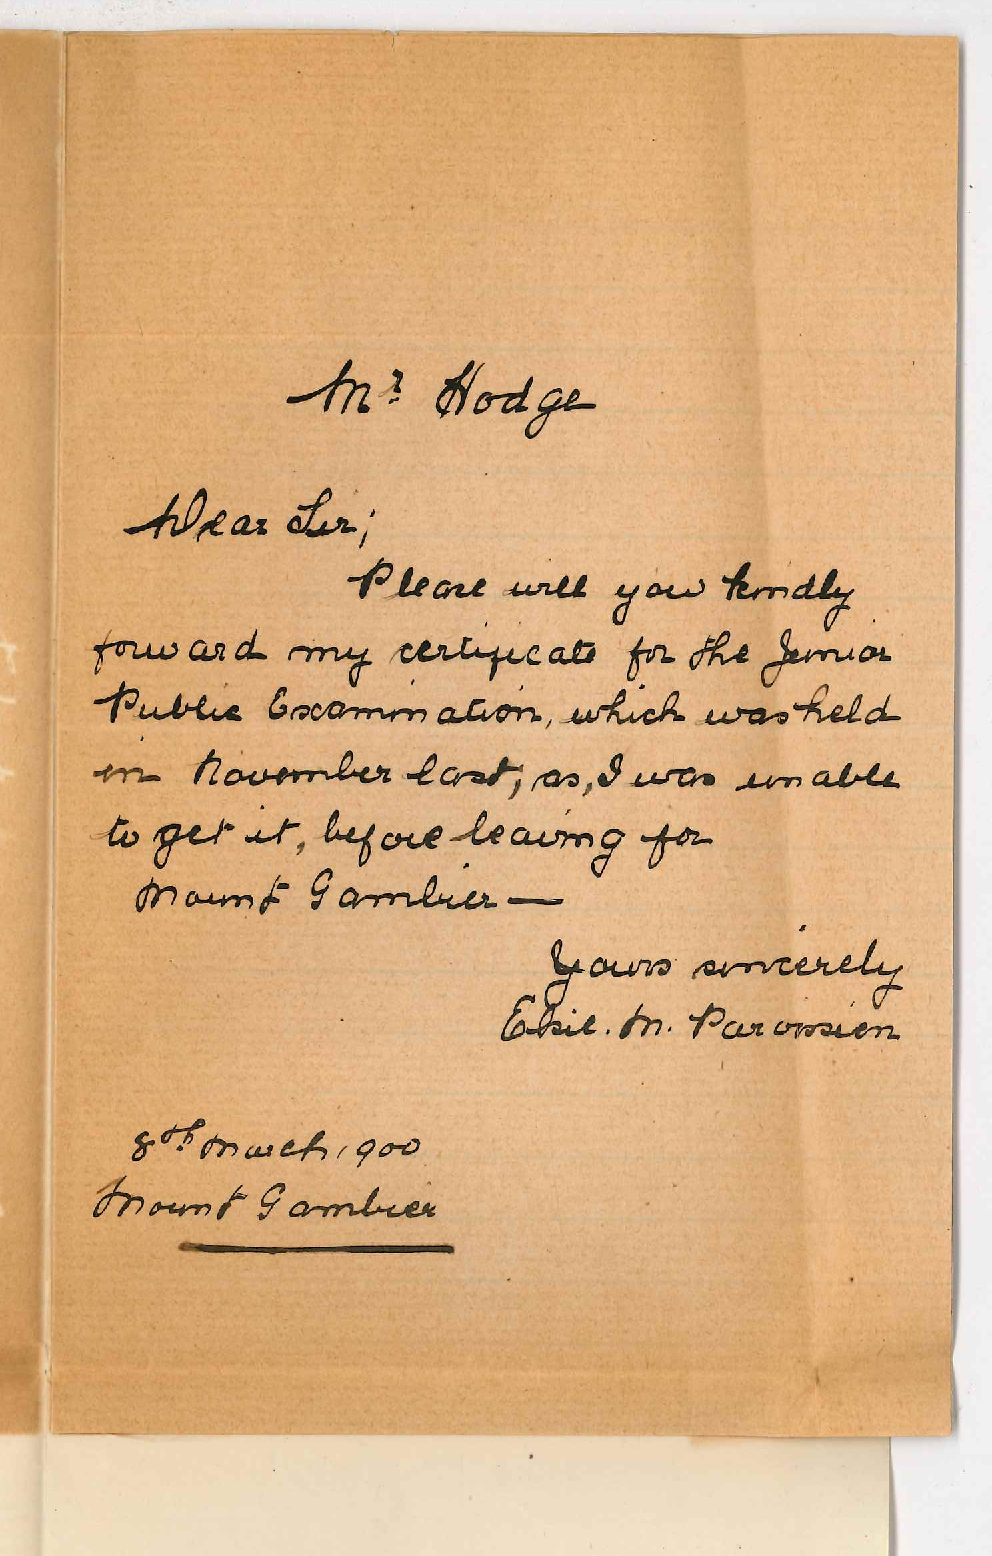 Mr. Hodge
Dear Sir;
Please will you kindly
forward my certificate for the Junior
Public Examination, which was held
in November last, as, I was unable
to get it, before leaving for
Mount Gambier —
Yours sincerely
Elsie. M. Paroissien
8th March, 1900
Mount Gambier